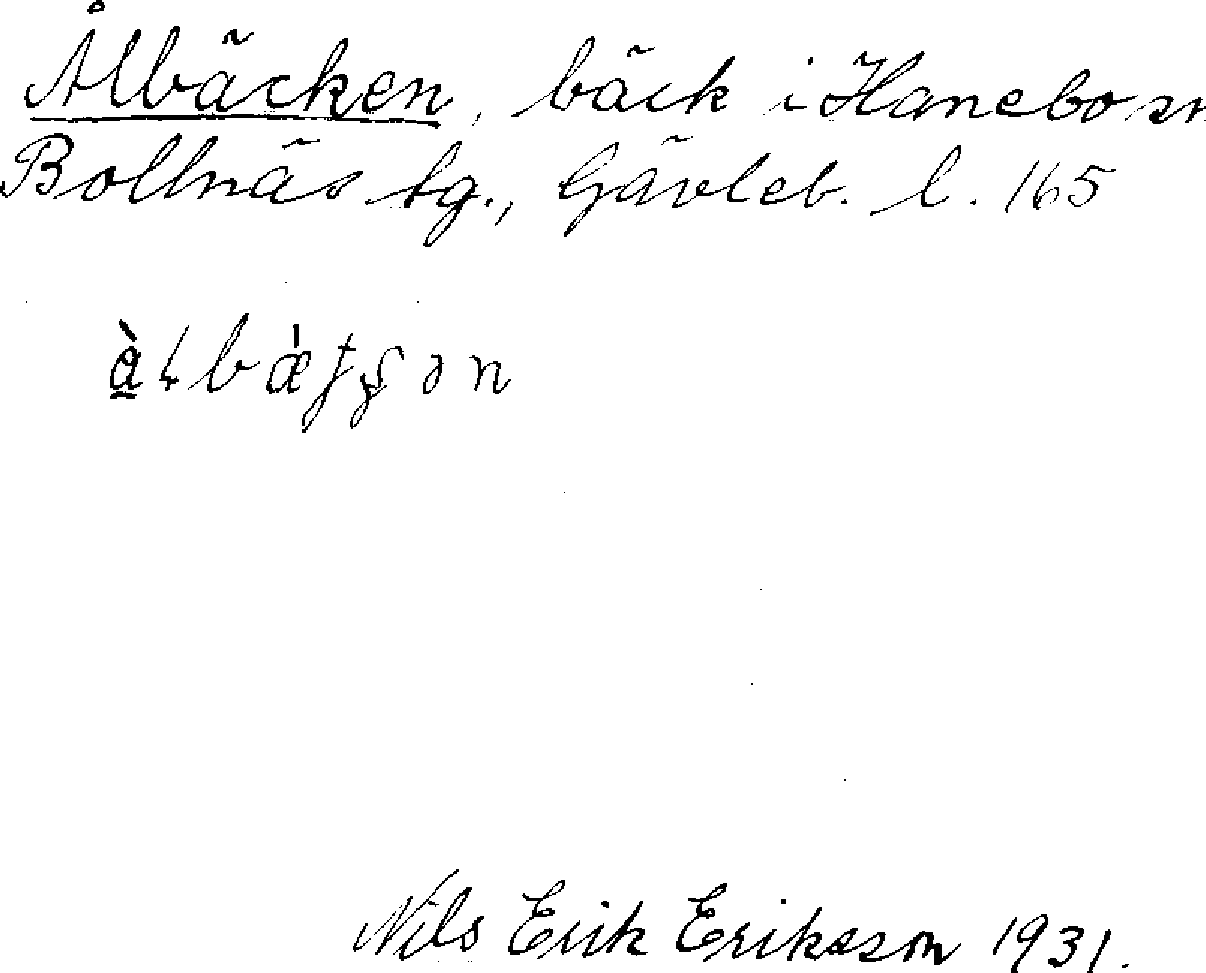 Ålbäcken, bäck i Hanebo sn
Bollnäs tg., Gävleb. l. 165
Nils Erik Eriksson 1931.